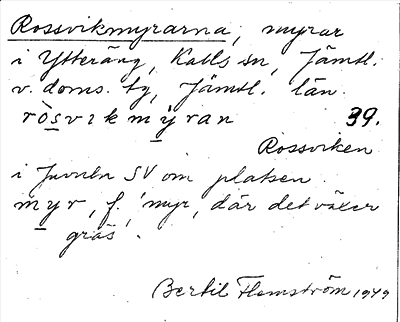 Rossvikmyrarna, myrar
i Ytteräng, Kalls sn, Jämtl.
v. doms. tg, Jämtl. län.
ròsvıkmýran 39.
Rossviken
i Juveln SV om platsen.
myr, f. 'myr, där det växer
gräs'.
Bertil Flemström 1979